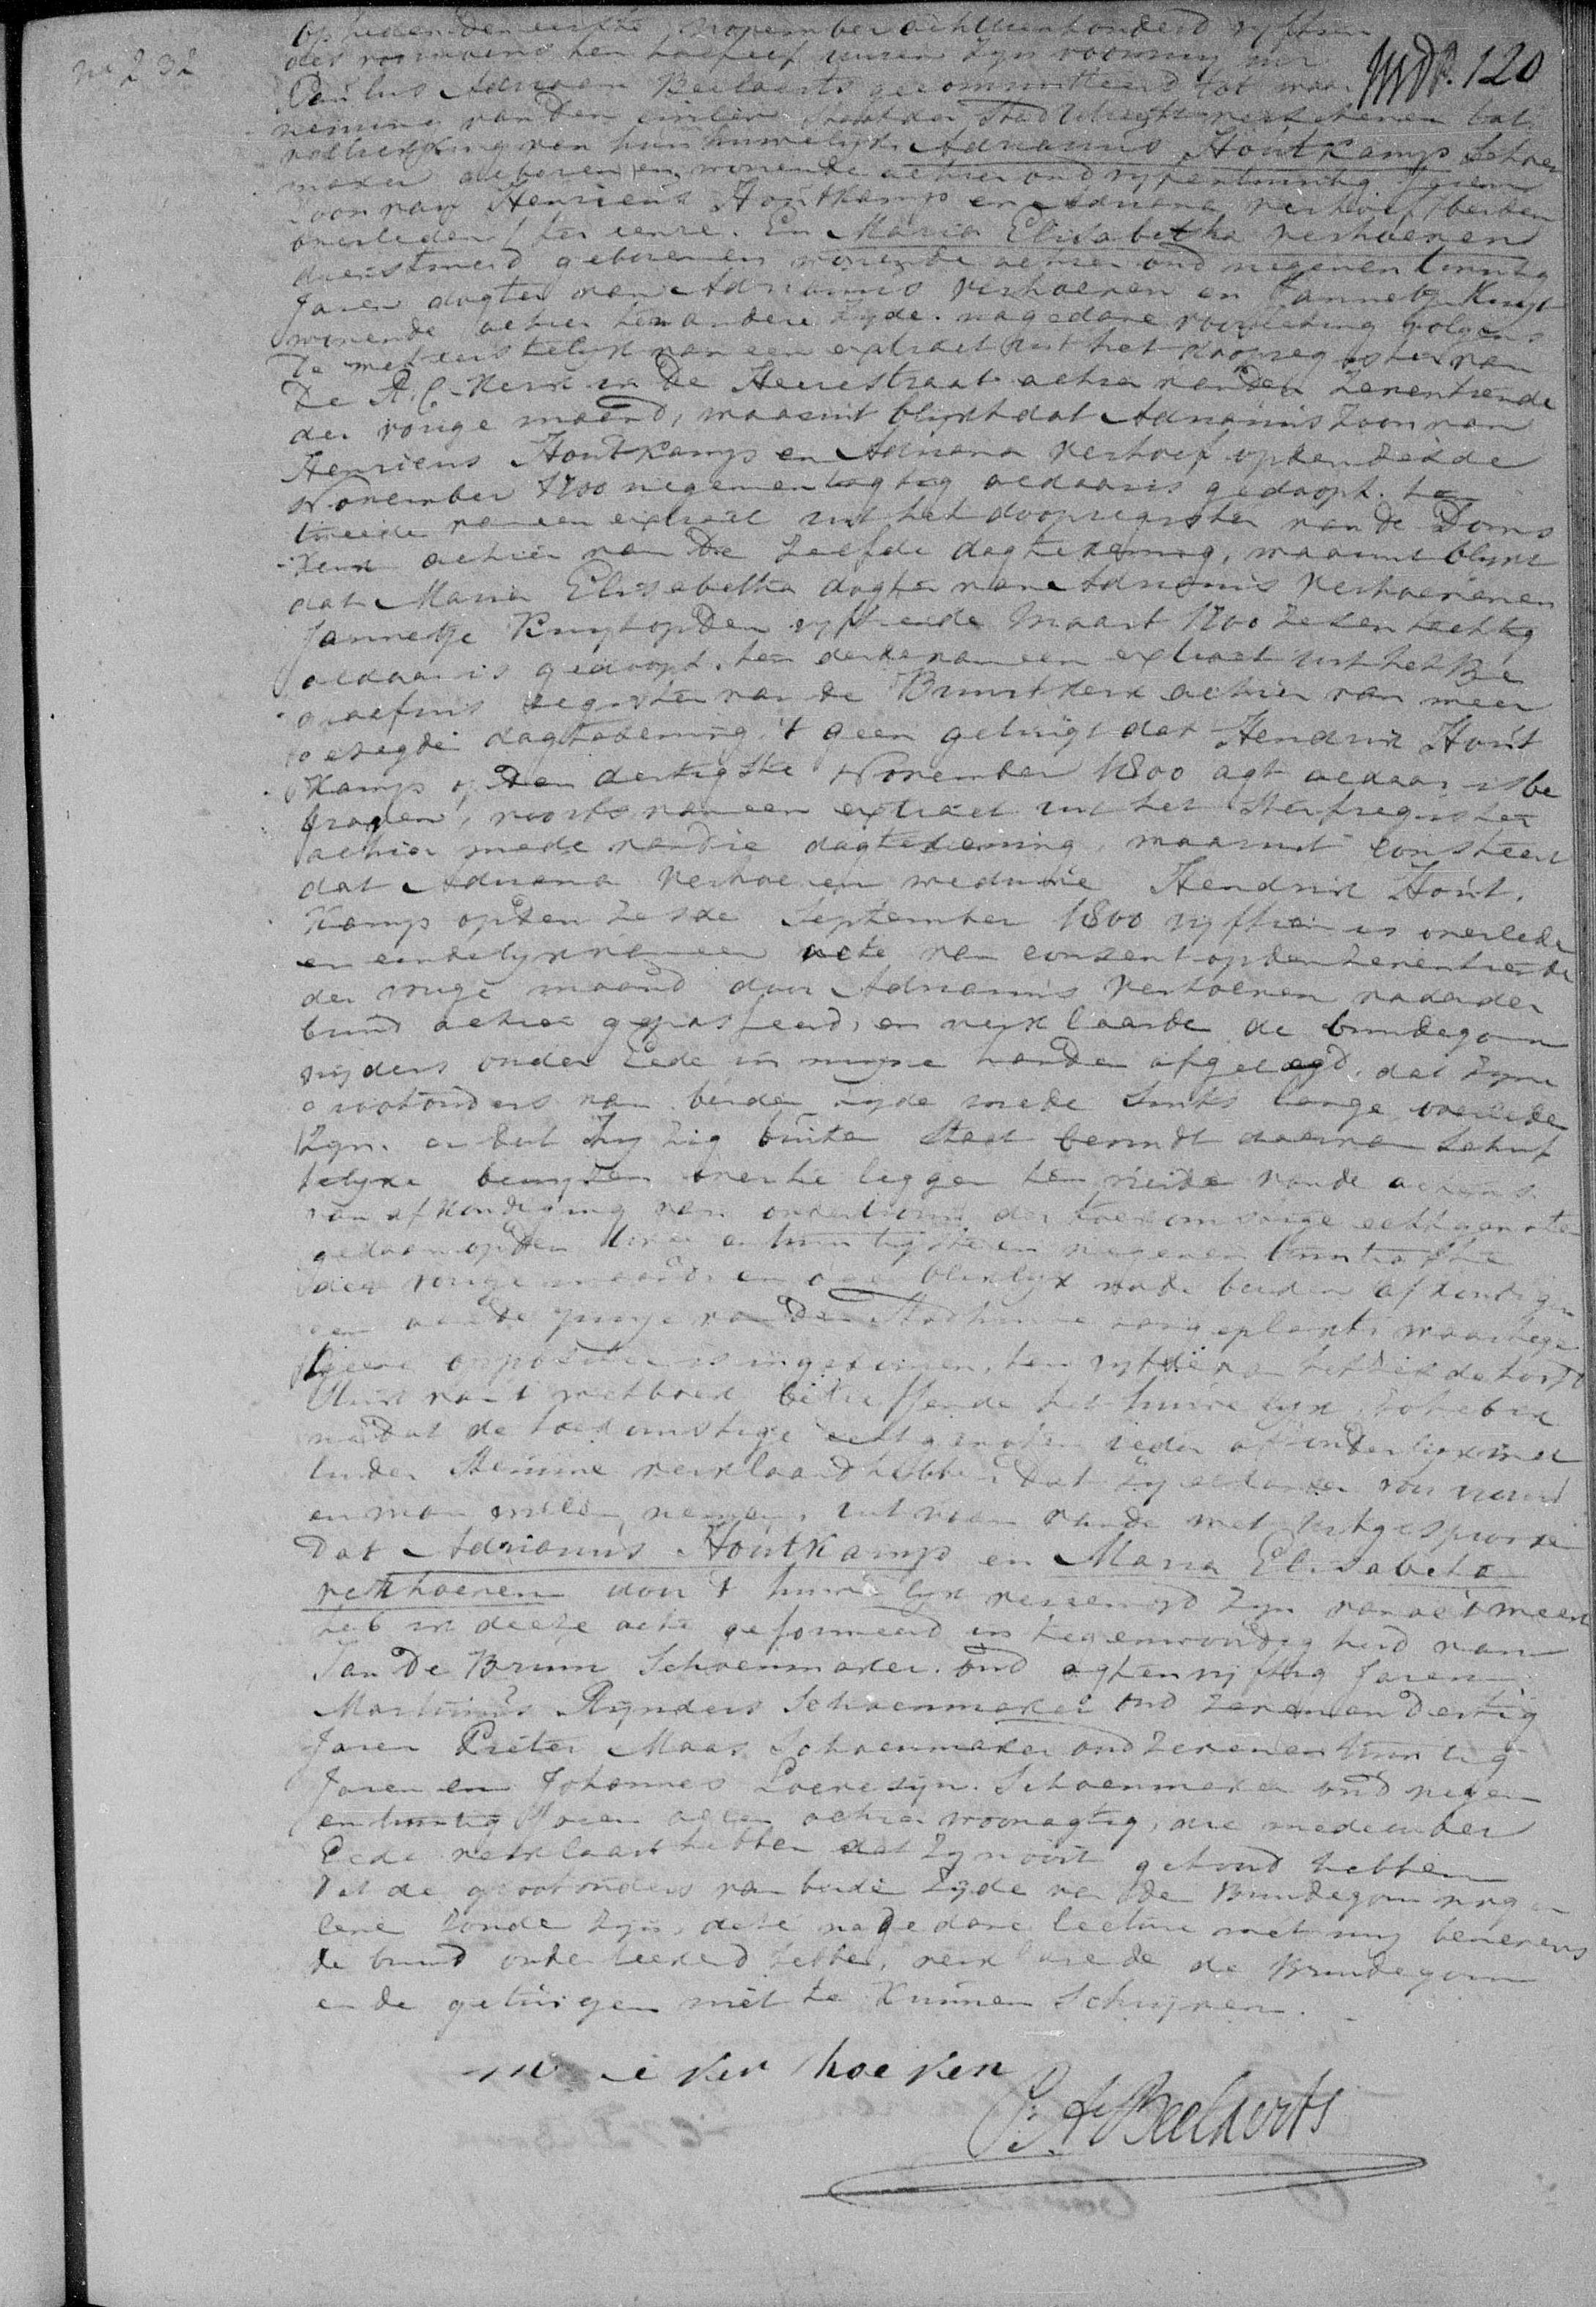 No 232
120
Op heden den eerste november achttienhonderd vyftien
des voormiddags ten half elf uuren zyn voor my mr
Paulus Adriaan Beelaerts gecommitteerd tot waar
neming van den civilen Staat der Stad Utrecht verschenen tot
voltrekking van hun huwelyk Adrianus Houtkamp Schoen
maker geboren en wonende achier oud vyfentwintig Jaren
Zoon van Henricus Houtkamp en Adriana verhoef beiden
overleden ter eenre. En Maria Elisabetha verhoeven
dienstmeid geboren en wonende achier oud negenentwintig
Jaren dogter van Adrianus verhoeven en Jannetje Kuyt
wonende achier ter andere Zyde. na gedane voorlezing volgens
de wet eerstelyk van een extract uit het doopregister van
De R.C. Kerk in De Heerestraat achier van den Zeventiende
der vorige maand, waaruit blykt dat Adrianus Zoon van
Henricus Houtkamp en Adriana verhoef op den derde
November 1700 negenentagtig aldaar is gedoopt. ten
tweede van een extract uit het doopregister van de Doms
Kerk achier van De Zelfde dagtekening, waaruit blykt
dat Maria Elisabetha dogter van Adrianus verhoeven en
Jannetje Kuyt op den vyftiende Maart 1700 Zesentachtig
aldaar is gedoopt. ten derde van een extract uit het Be
graefnis register van de Buurtkerk achier van meer
gezegde dagtekening 't geen getuigt dat Hendrik Hout
Kamp op den dertigste November 1800 agt aldaar is be
graven, voorts van een extract uit het Sterfregister
achier mede van die dagtekening, waaruit consteert
dat Adriana verhoeven weduwe Hendrik Hout
Kamp op den Zesde September 1800 vyftien is overleden
en eindelyk van een acte van consent op den Zeventiende
der vorige maand door Adrianus verhoeven vader der
bruid achier gepasseerd, en verklaarde de bruidegom
wyders onder Eede in myne handen afgelegd, dat Zyne
grootouders van beide Zyde mede Sints lange overleden
Zyn. en dat hy Zig buiten Staat bevindt daarvan Schrif
telyke bewyzen over te leggen ten vierde van de actens
van afkondiging van ondertrouw der toekomstige echtgenoten
gedaan op den twee en twintigste en negenentwintigste
der vorige maand. en ogenblikkelyk na de beiden afkondigin
gen aan de puye van den Stadhuize aangeplakt waartegen
geene oppositie is ingekomen. ten vyfde van het Zesde hoofd
Stuk van 't wetboek betreffende het huwelyk, en heb ik
nadat de toekomstige echtgenoten ieder afzonderlyk met
luider Stemme verklaard hebben Dat Zy elkander tot vrouw
en man willen nemen, uit naam van de wet uitgesproken
Dat Adrianus Houtkamp en Maria Elisabeta
verhoeven door 't huwelyk vereenigd Zyn van al 't welk
heb ik deeze acte geformeerd in tegenwoordigheid van
Jan De Bruin Schoenmaker oud agtenvyftig Jaren
Martinus Rynders Schoenmaker oud Zevenendertig
Jaren Pieter Maas Schoenmaker oud Zevenentwintig
Jaren en Johannes Schoenmaker oud negen
entwintig Jaren allen achier woonagtig, die mede onder
Eede verklaart hebben dat Zy nooit gehoord hebben
dat de grootouders van beide Zyde van den Bruidegom nog in
leven Zoude Zyn, deze na gedane lecture met my benevens
de bruid ondertekend hebben, verklarende de Bruidegom
en de getuigen niet te Kunnen Schryven.
ver hoeven
P. A. Beelaerts